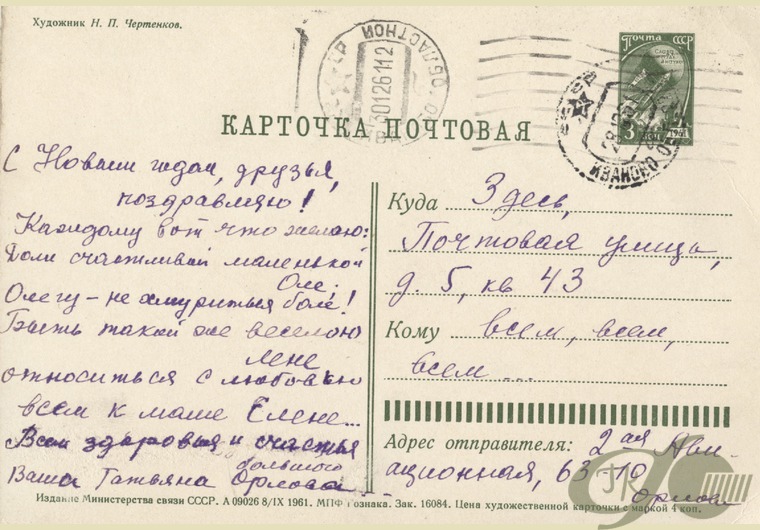 Художник Н. П. Чертенков.
ОБЛАСТНОЙ
30126112
ПОЧТА СССР
3 КОП 1961
ИВАНОВО
КАРТОЧКА ПОЧТОВАЯ
С Новым годом, друзья,
поздравляю!
Каждому вот что желаю:
Доли счастливой маленькой
Оле;
Олегу – не хмуриться боле!
Быть такой же веселою
Лене
относиться с любовью
всем к маме Елене...
Всем здоровья и счастья
большого
Ваша Татьяна Орлова.
Куда Здесь,
Почтовая улица,
д. 5, кв 43
Кому всем, всем,
всем...
Адрес отправителя: 2-ая Ави-
ационная, 63-10
Орлова
Издание Министерства связи СССР. А 09026 8/IX 1961. МПФ Гознака. Зак. 16084. Цена художественной карточки с маркой 4 коп.